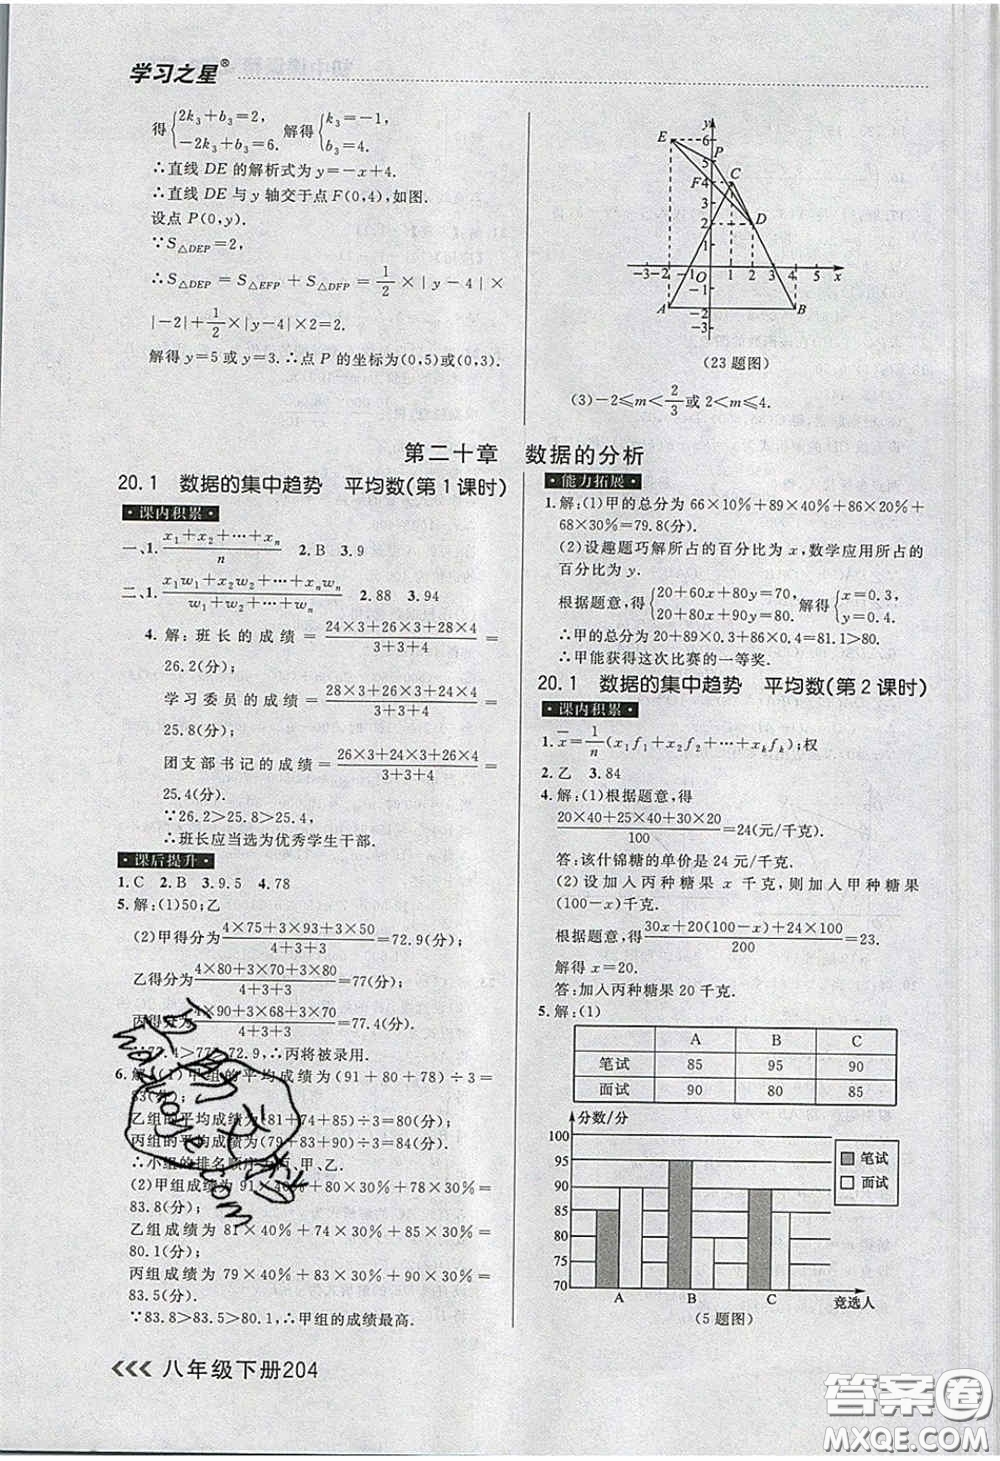 学习之星®
得{2k₃+b₃=2, -2k₃+b₃=6. 解得{k₃=-1, b₃=4.
∴直线 DE 的解析式为 y=-x+4.
∴直线 DE 与 y 轴交于点 F(0,4),如图.
设点 P(0,y).
∵S△DEP=2,
∴S△DEP=S△EFP+S△DFP=1/2×|y-4|×
|-2|+1/2×|y-4|×2=2.
解得 y=5 或 y=3. ∴点 P 的坐标为(0,5)或(0,3).
y
E 6
5 P
F 4 C
3
2 D
1
-3 -2 -1 O 1 2 3 4 5 x
-1
A -2 B
-3
(23 题图)
(3)-2≤m<2/3或 2<m≤4.
第二十章 数据的分析
20.1 数据的集中趋势 平均数(第 1 课时)
·课内积累·
一、1. (x₁+x₂+⋯+xₙ)/n 2.B 3.9
二、1. (x₁w₁+x₂w₂+⋯+xₙwₙ)/(w₁+w₂+⋯+wₙ) 2.88 3.94
4.解:班长的成绩=(24×3+26×3+28×4)/(3+3+4)=
26.2(分);
学习委员的成绩=(28×3+26×3+24×4)/(3+3+4)=
25.8(分);
团支部书记的成绩=(26×3+24×3+26×4)/(3+3+4)=
25.4(分).
∵26.2>25.8>25.4,
∴班长应当选为优秀学生干部.
·课后提升·
1.C 2.B 3.9.5 4.78
5.解:(1)50;乙
(2)甲得分为(4×75+3×93+3×50)/(4+3+3)=72.9(分);
乙得分为(4×80+3×70+3×80)/(4+3+3)=77(分);
丙得分为(4×90+3×68+3×70)/(4+3+3)=77.4(分).
∵77.4>77>72.9,∴丙将被录用.
6.解:(1)甲组的平均成绩为(91+80+78)÷3=
83(分);
乙组的平均成绩为(81+74+85)÷3=80(分);
丙组的平均成绩为(79+83+90)÷3=84(分).
∴小组的排名顺序为丙、甲、乙.
(2)甲组成绩为 91×40%+80×30%+78×30%=
83.8(分);
乙组成绩为 81×40%+74×30%+85×30%=
80.1(分);
丙组成绩为 79×40%+83×30%+90×30%=
83.5(分).
∵83.8>83.5>80.1,∴甲组的成绩最高.
·能力拓展·
1.解:(1)甲的总分为 66×10%+89×40%+86×20%+
68×30%=79.8(分).
(2)设趣题巧解所占的百分比为 x,数学应用所占的
百分比为 y.
根据题意,得{20+60x+80y=70, 20+80x+90y=80. 解得{x=0.3, y=0.4.
∴甲的总分为 20+89×0.3+86×0.4=81.1>80.
∴甲能获得这次比赛的一等奖.
20.1 数据的集中趋势 平均数(第 2 课时)
·课内积累·
1.x̄=1/n(x₁f₁+x₂f₂+⋯+xₖfₖ);权
2.乙 3.84
4.解:(1)根据题意,得
(20×40+25×40+30×20)/100=24(元/千克).
答:该什锦糖的单价是 24 元/千克.
(2)设加入丙种糖果 x 千克,则加入甲种糖果
(100-x)千克.
根据题意,得(30x+20(100-x)+24×100)/200=23.
解得 x=20.
答:加入丙种糖果 20 千克.
5.解:(1)
A B C
笔试 85 95 90
面试 90 80 85
分数/分
100
95
90
85
80
75
70
A B C 竞选人
笔试
面试
(5 题图)
八年级下册204
答案圈
MXQE.COM